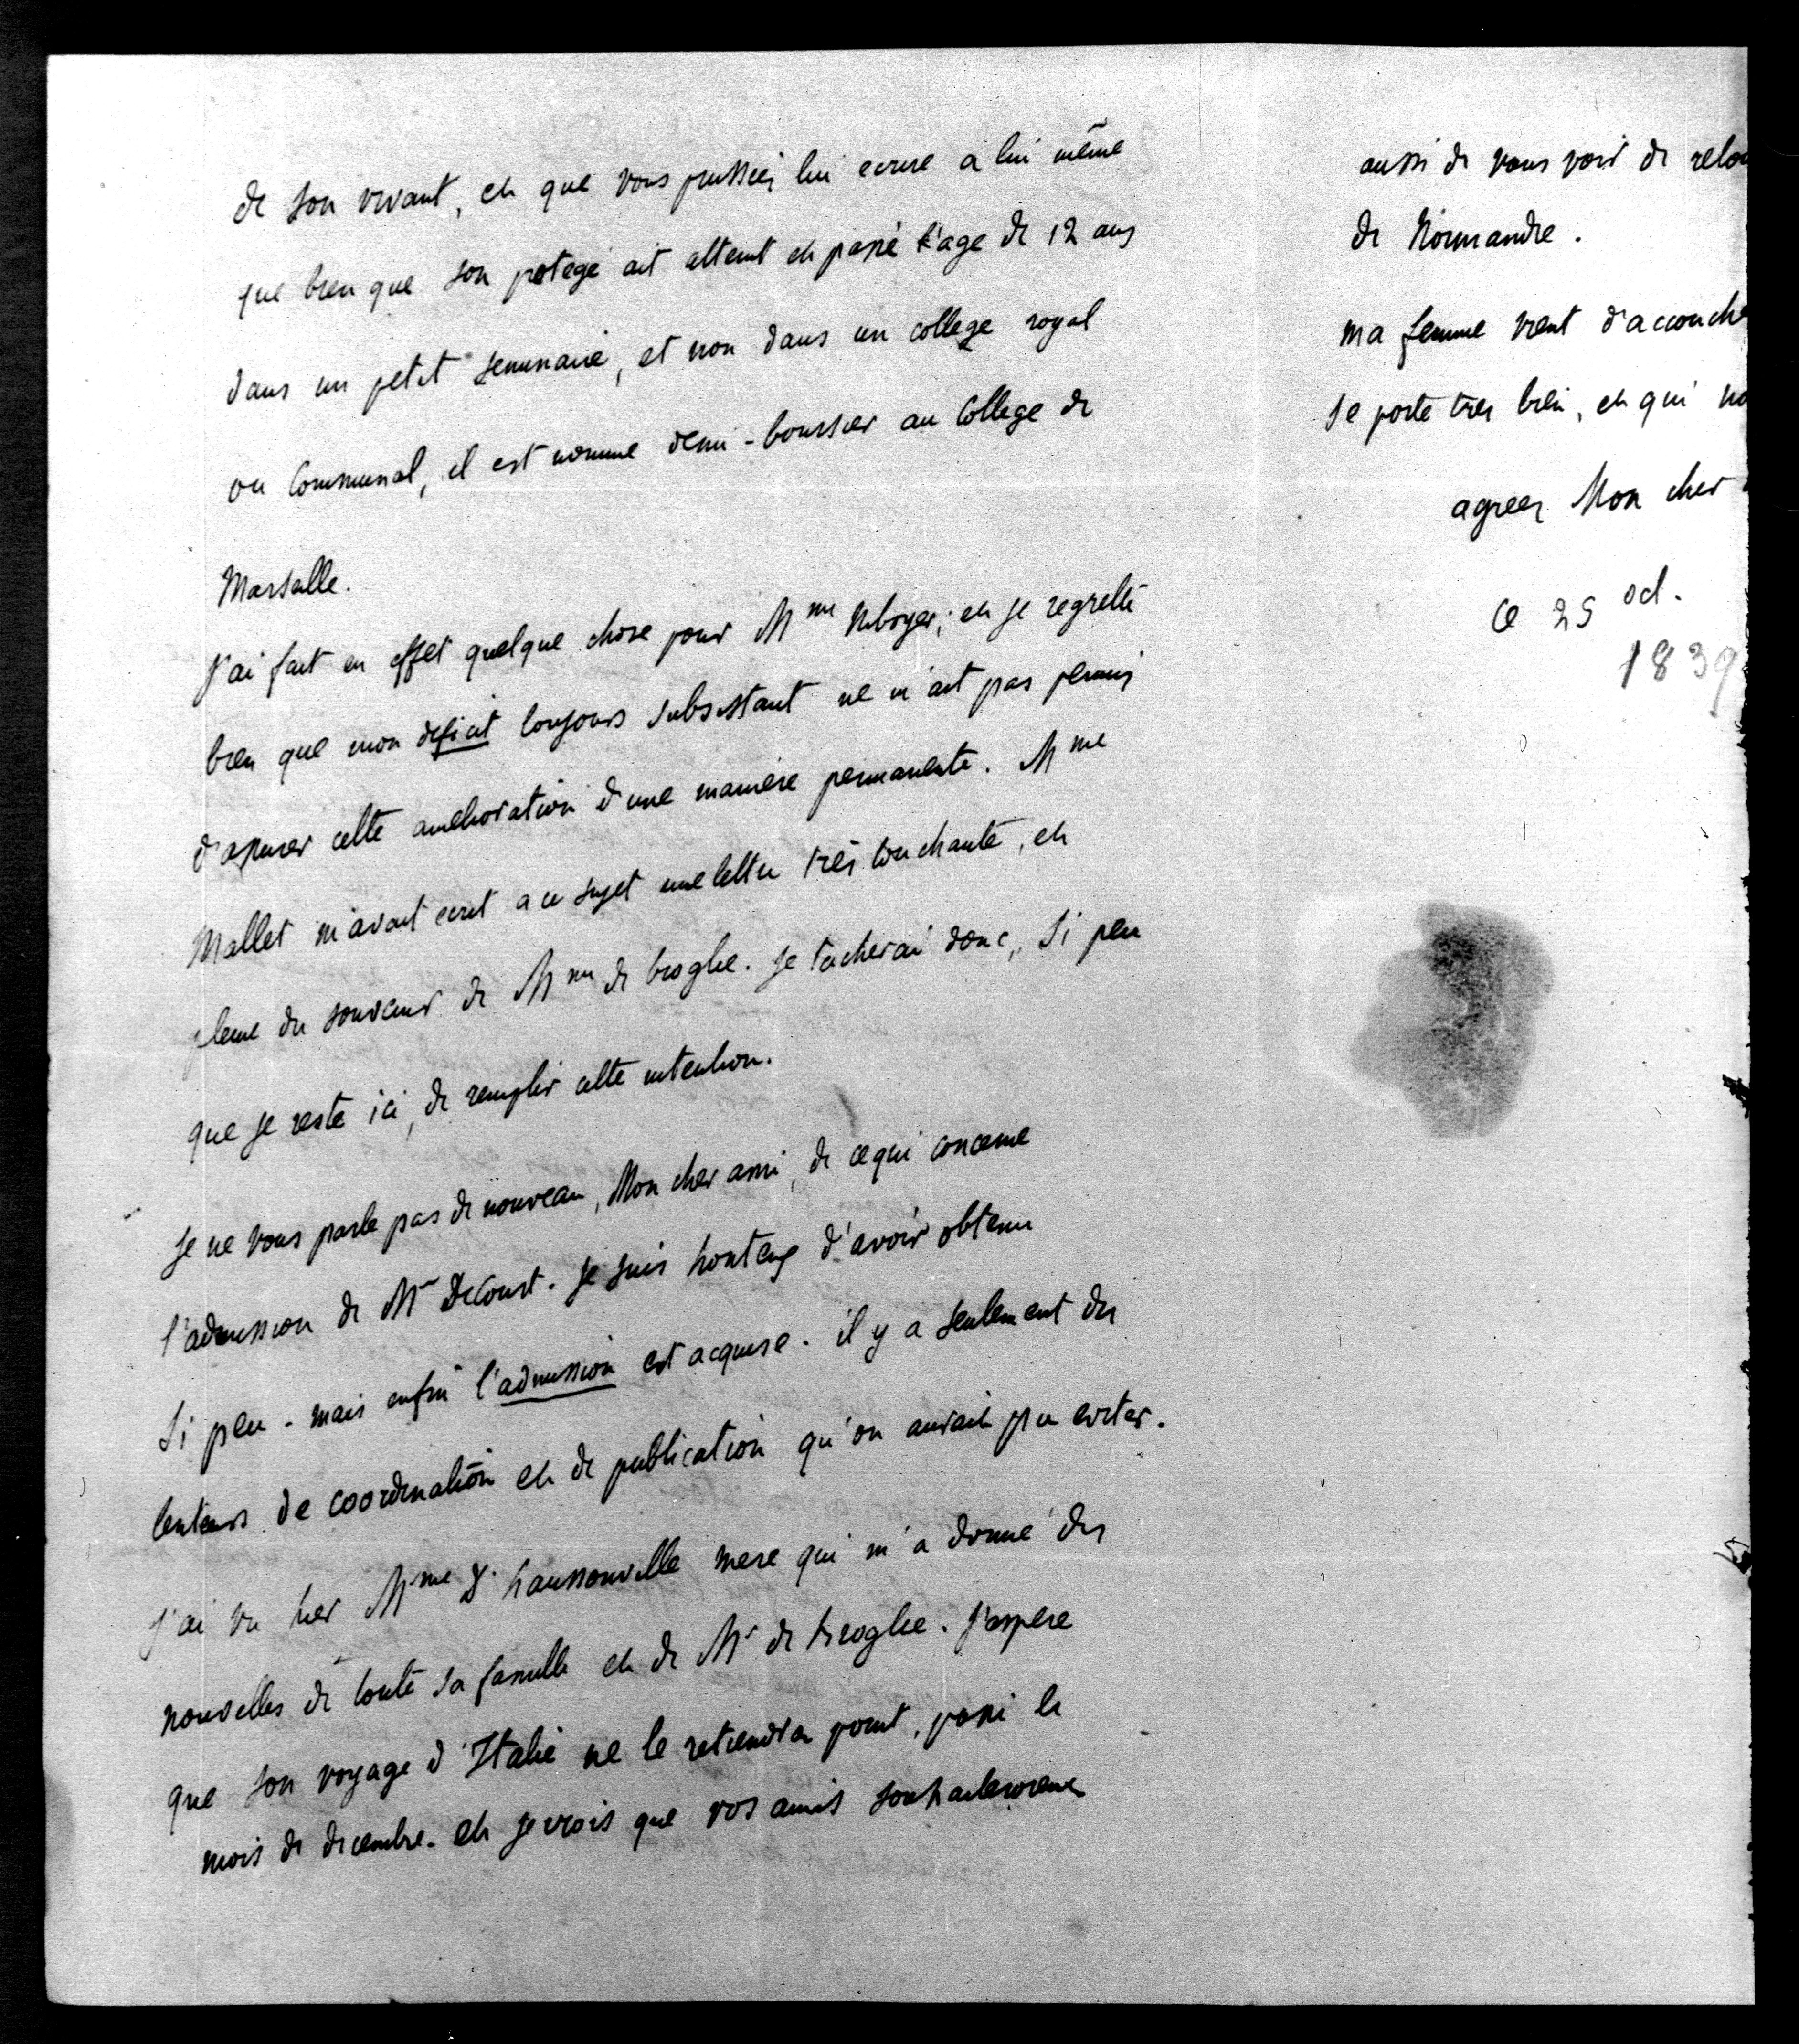 de son vivant, et que vous pussiez lui ecrire a lui même
que bien que son protegé ait atteint et passé l'age de 12 ans
dans un petit seminaire, et non dans un college royal
ou Communal, il est nommé demi-boursier au College de
Marseille.
J'ai fait en effet quelque chose pour Mme Niboyer; et je regrette
bien que mon deficit toujours subsistant ne m'ait pas permis
d'assurer cette amelioration d'une maniere permanente. Mme
Mallet m'avait ecrit a ce sujet une lettre très touchante, et
pleine du souvenir de Mme de broglie. Je tacherai donc, si peu
que je reste ici, de remplir cette intention.
Je ne vous parle pas de nouveau, Mon cher ami, de ce qui concerne
l'admission de Mr Decourt. Je suis honteux d'avoir obtenu
Si peu - mais enfin l'admission est acquise. il y a seulement des
lenteurs de coordination et de publication qu'on aurait pu eviter.
J'ai vu hier Mme d'haussonville mere qui m'a donné des
nouvelles de toute sa famille et de Mr de broglie. J'espere
que son voyage d'Italie ne le retiendra point, passé le
mois de decembre. et je crois que vos amis souhaiteroient
aussi de vous voir de
de Normandie.
ma femme vient
se porte tres bien, et qui
agreez Mon cher
Ce 25 oct.
1839